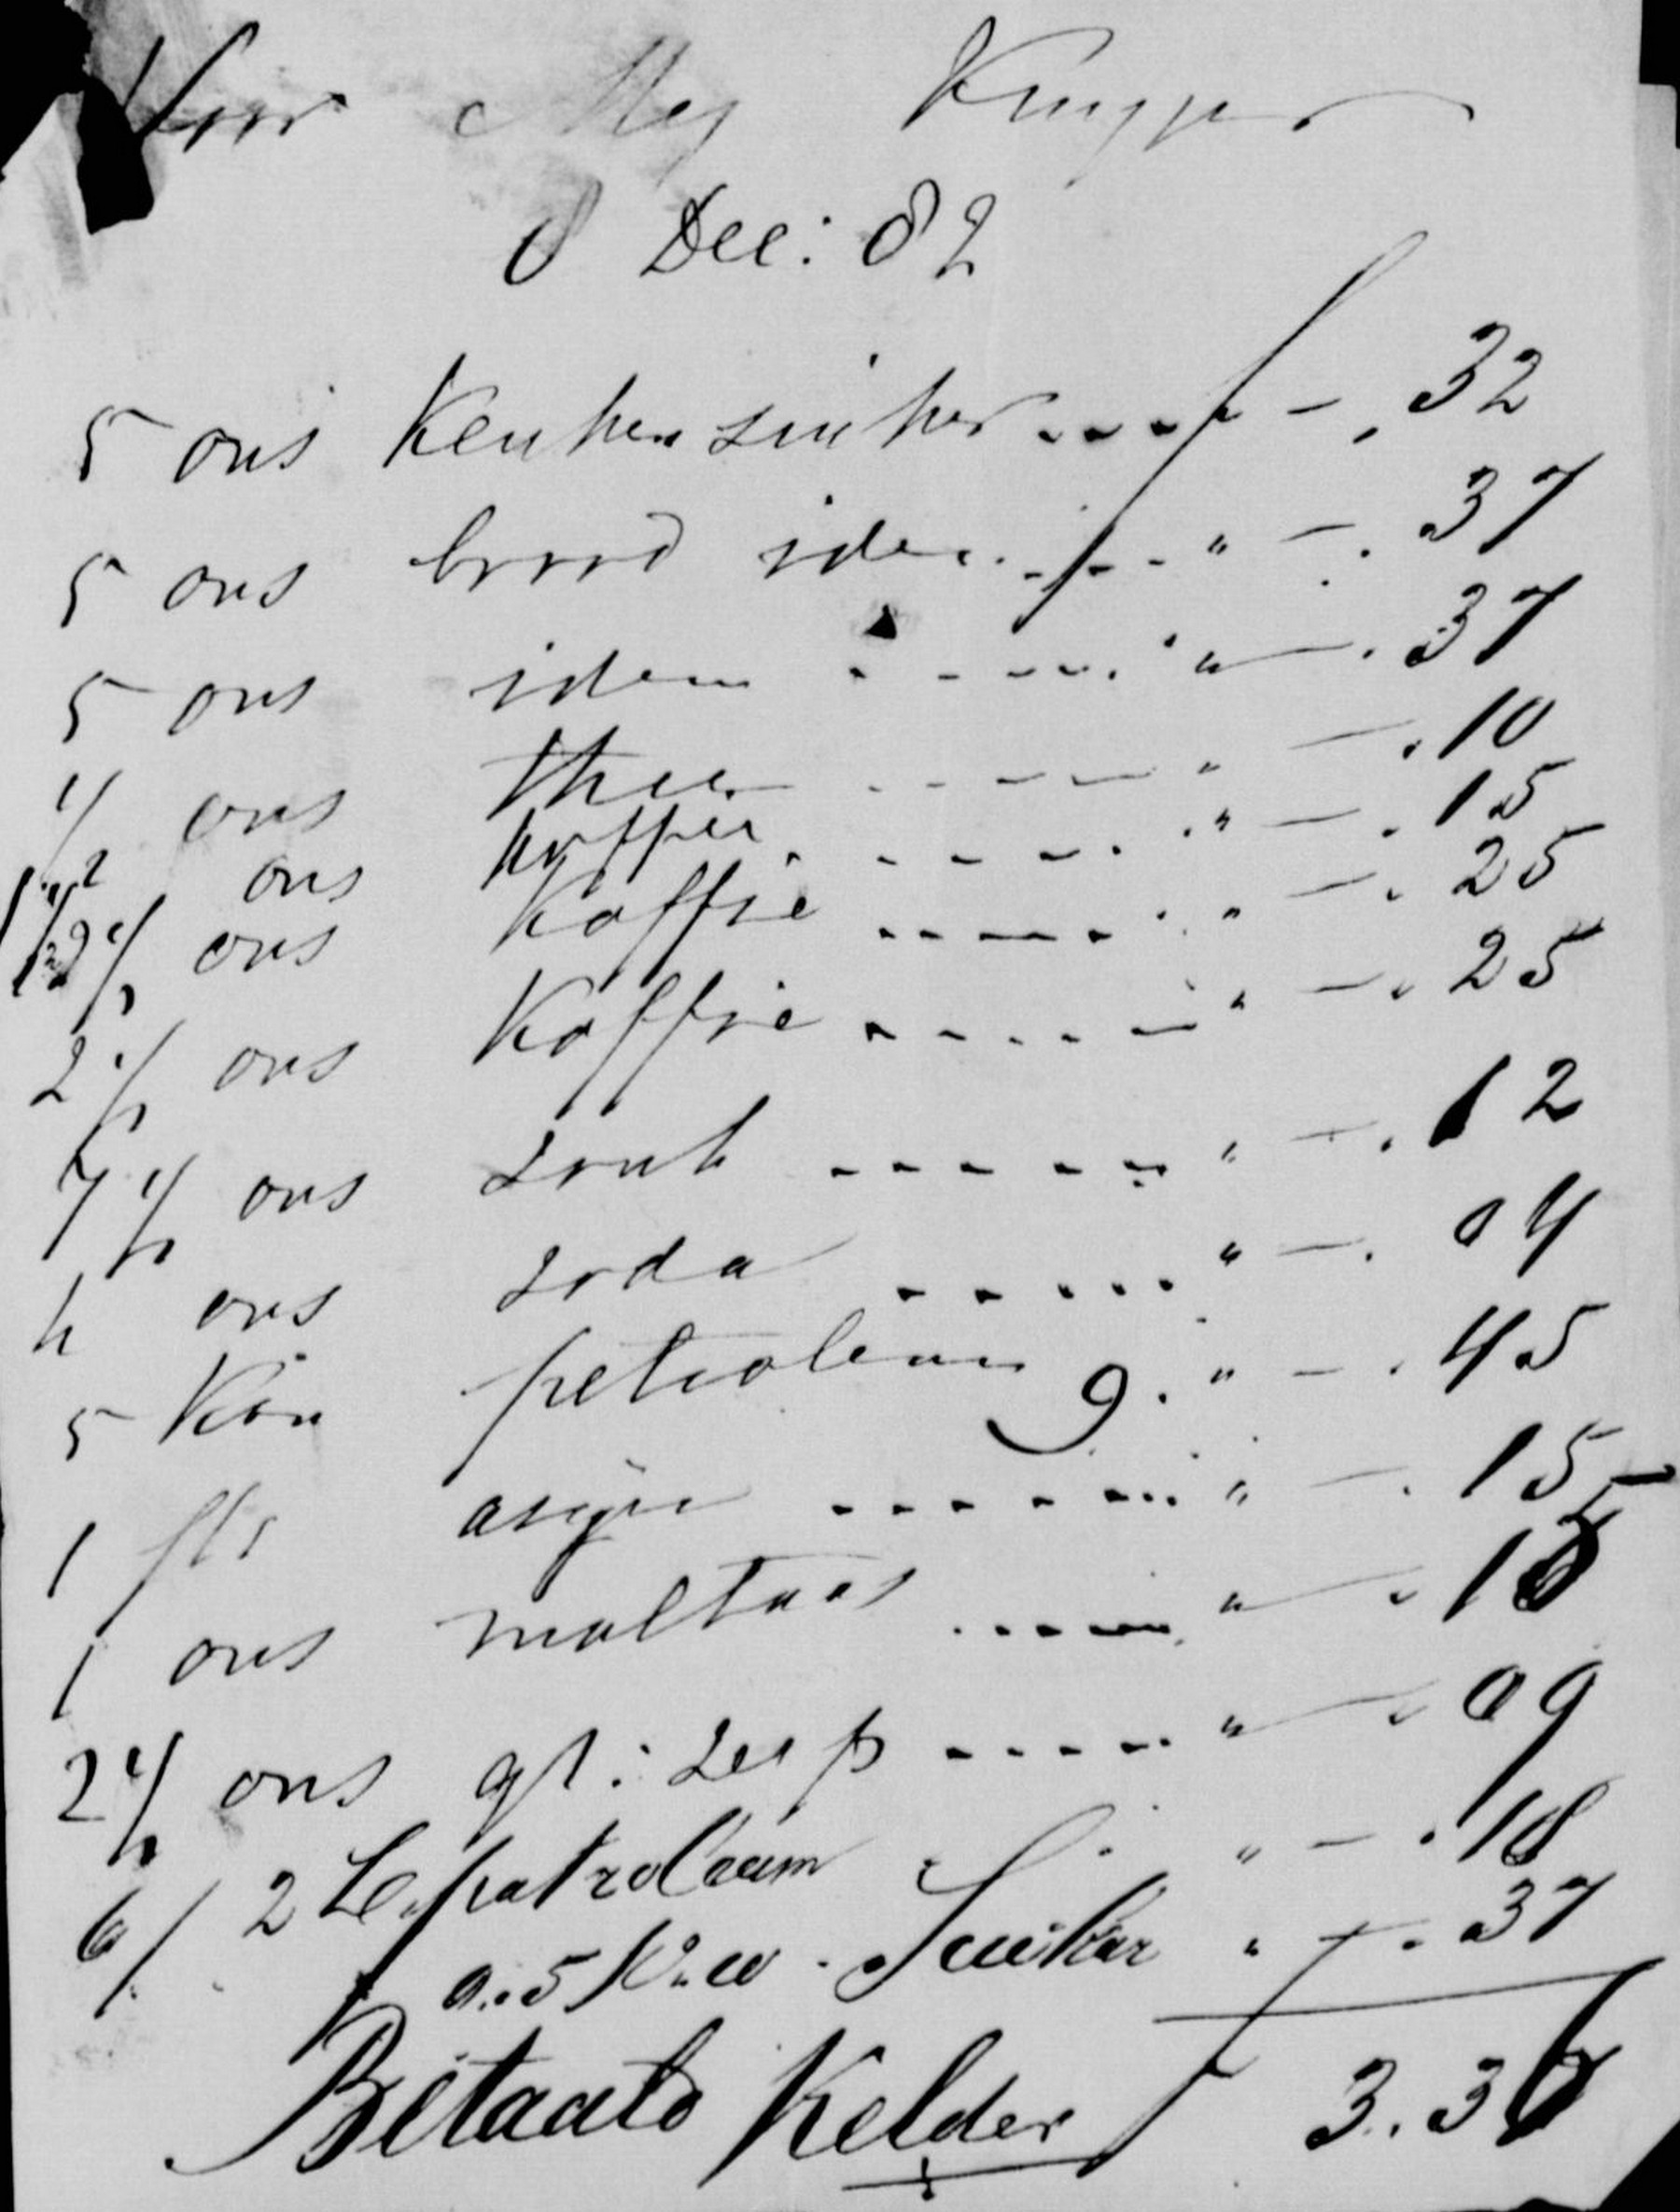 Voor Mej Knupper
8 Dec: 82
5 ons Keuken suiker .... f - . 32
5 ons brood idem . - - - " - . 37
5 ons idem . - - - . " - . 37
1/2 ons thee - - - - " - . 10
ons koffie . - - - - . " - . 15
2 1/2 ons Koffie ------ . " - . 25
2 1/2 ons Koffie ------ " - . 25
7 1/2 ons zout ------ " - . 12
ons soda ...... " - . 04
5 Kan petroleum 9 . " - . 45
1 fls azijn ------ " - . 15
1 ons maltaas ..... " - . 15
2 1/2 ons gr: zeep ----- " - . 09
6/ 2 Le. patroleum . . " - . 18
0.5 Kilo . Suiker " - . 37
Betaald Kelder f 3.36